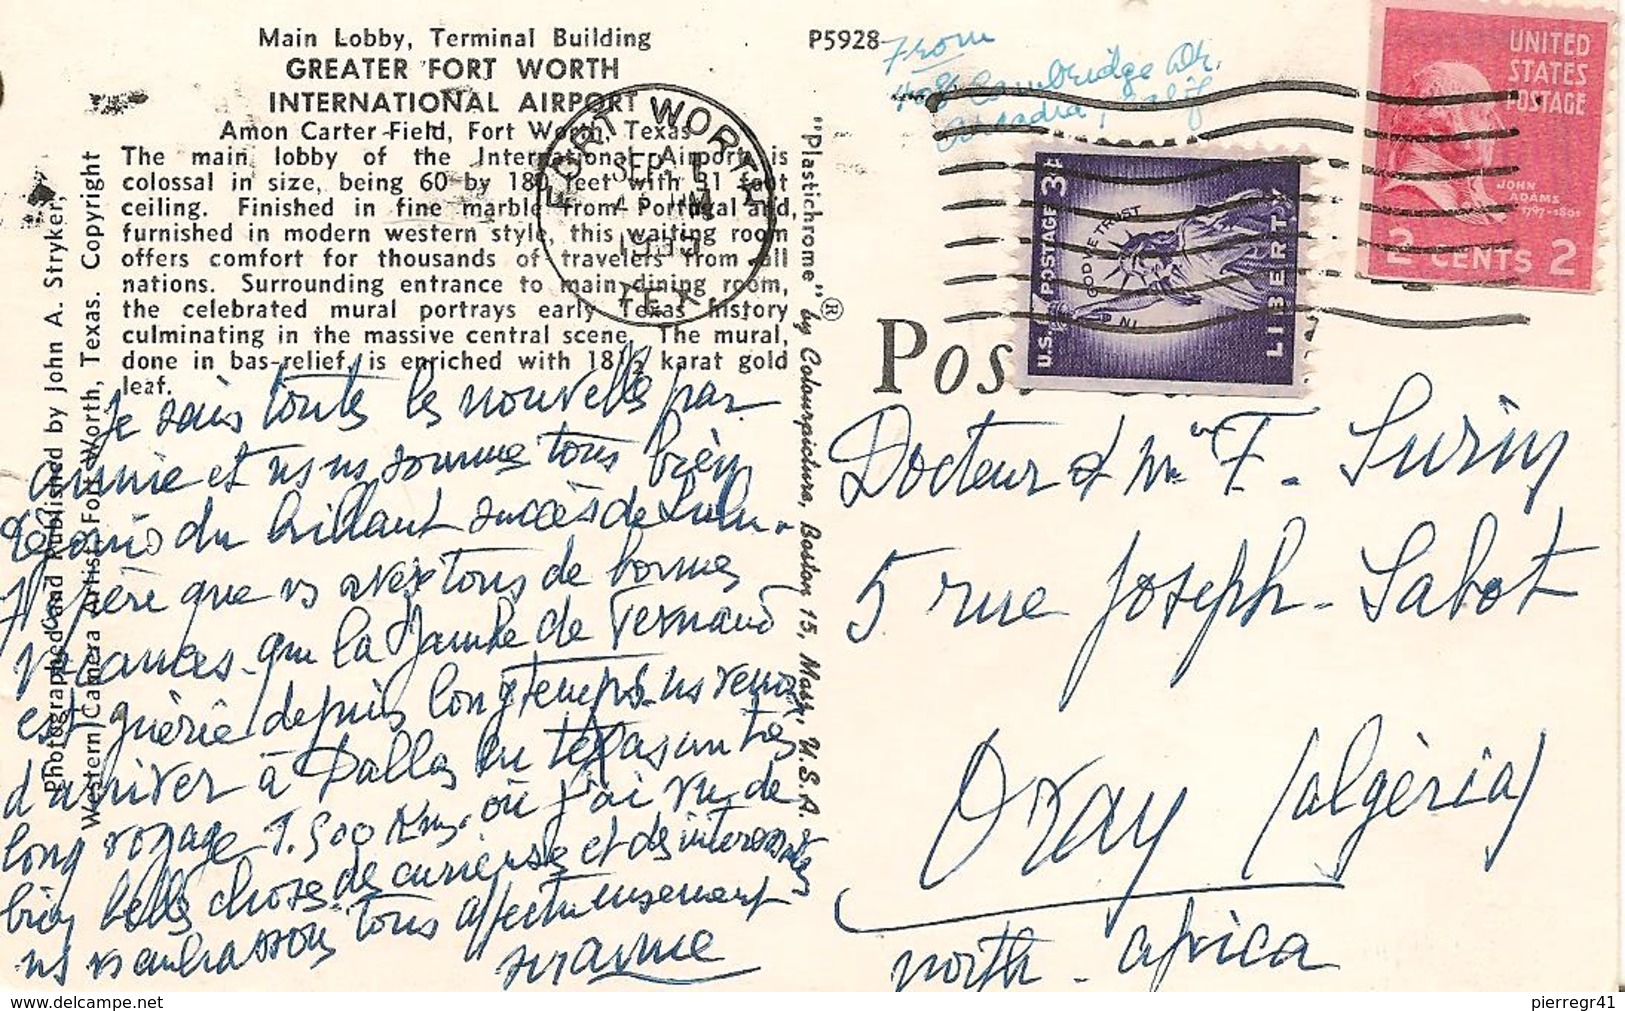 Main Lobby, Terminal Building
GREATER FORT WORTH
INTERNATIONAL AIRPORT
Amon Carter Field, Fort Worth, Texas
The main lobby of the International Airport is
colossal in size, being 60 by 180 feet with 31 foot
ceiling. Finished in fine marble from Portugal and,
furnished in modern western style, this waiting room
offers comfort for thousands of travelers from all
nations. Surrounding entrance to main dining room,
the celebrated mural portrays early Texas history
culminating in the massive central scene. The mural,
done in bas-relief, is enriched with 18½ karat gold
leaf.
Photographed and Published by John A. Stryker,
Western Camera Artist, Fort Worth, Texas. Copyright
P5928
"Plastichrome" ® by Colourpicture, Boston 15, Mass., U.S.A.
From
408 Cambridge Dr.
Arcadia, Calif
FORT WORTH
SEP
TEX
UNITED
STATES
POSTAGE
JOHN
ADAMS
1797-1801
2 CENTS 2
U.S. POSTAGE 3¢
IN GOD WE TRUST
LIBERTY
Pos
Je sais toutes les nouvelles par
annie et ns ns sommes tous bien
réjouis du brillant succès de Lulu.
J'espère que vs avez tous de bonnes
vacances. que la jambe de Fernand
est guérie depuis longtemps. ns venons
d'arriver à Dallas en texas un très
long voyage 1.500 Kms. où j'ai vu de
bien belles choses de curieuse et des interessantes
ns vs embrassons tous affectueusement
Docteur & Mme F. Suriny
5 rue Joseph-Sabot
Oran (algéria)
north-africa
pierregr41